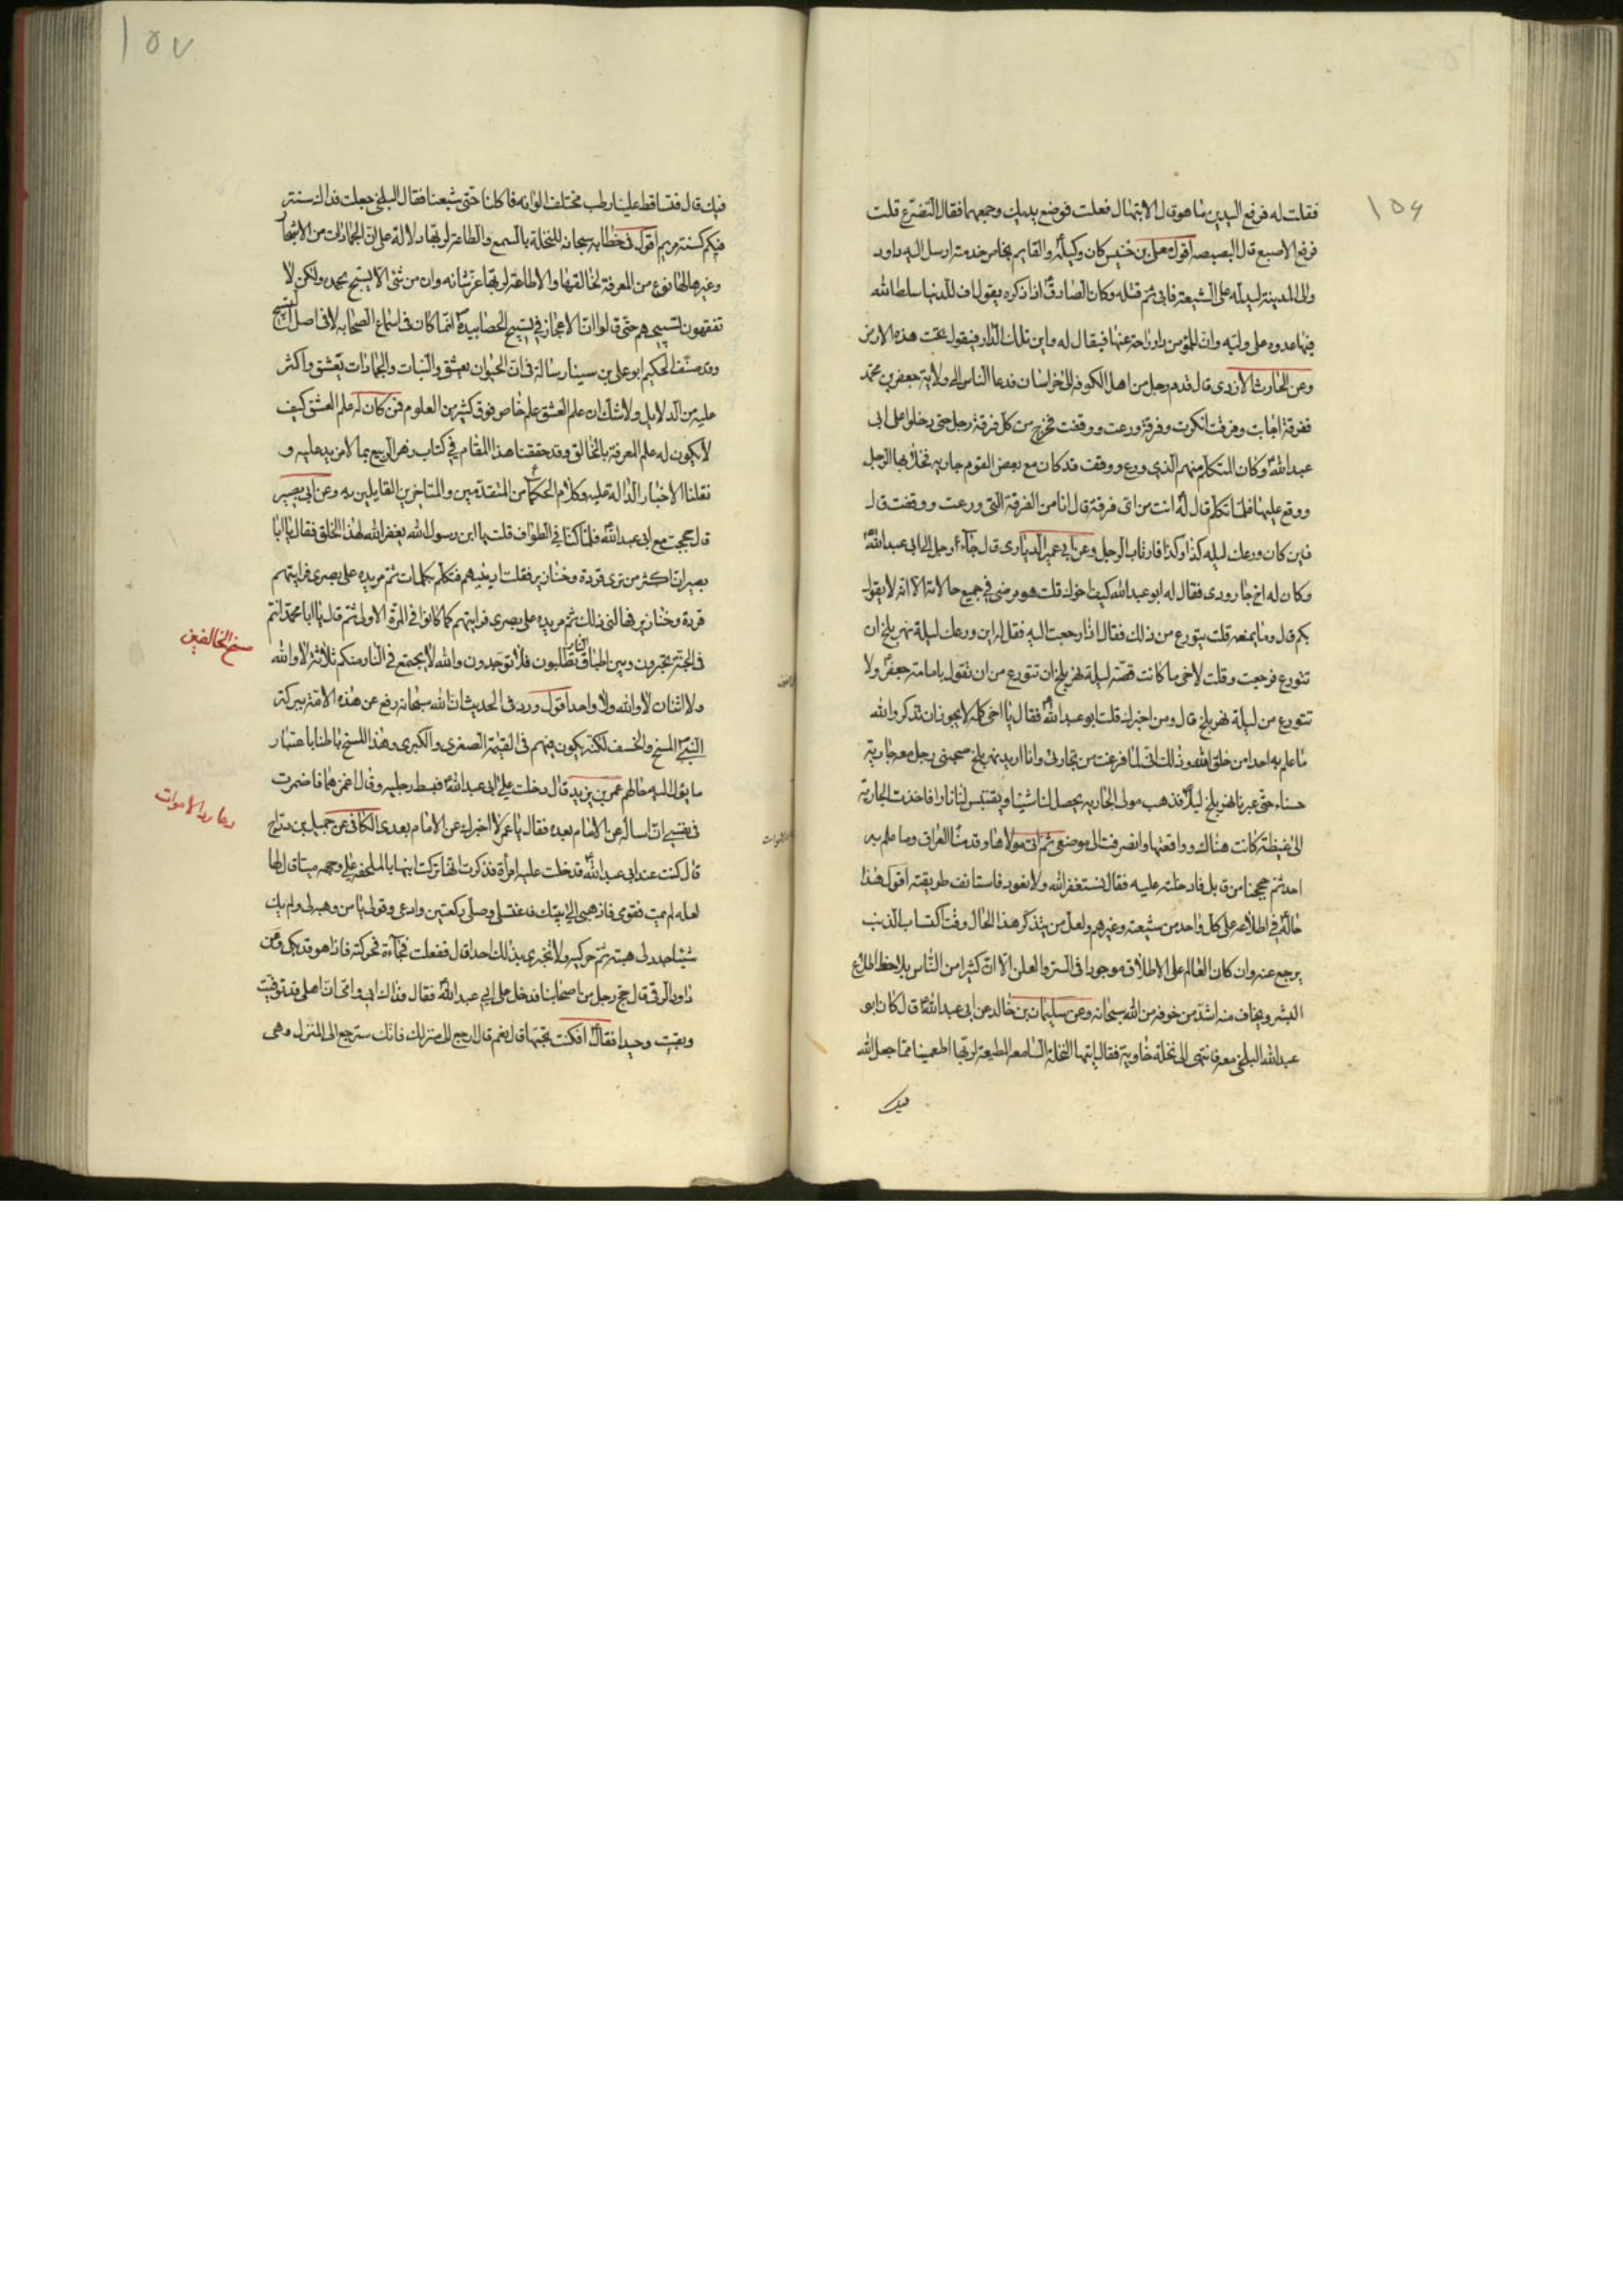 ١٥٦
فقلت له فرفع اليدين ما هو قال الابتهال فعلت فوضع يديك وجمعهما فقال التضرع قلت
فرفع الاصبع قال البصبصه اقول معلى بن خنيس كان وكيله والقايم بخاص خدمته ارسل اليه داود
والى المدينة ليدله على الشيعة فابى ثم قتله وكان الصادق اذا ذكره يقول اف للدنيا سلط الله
فيها عدوه على وليه وان للمؤمن دار راحة عنها فيقال له واين تلك الدار فيقول تحت هذه الارض
وعن الحارث الازدى قال قدم رجل من اهل الكوفه الى خراسان فدعا الناس الى ولاية جعفر بن محمد
ففرقة اجابت وفرقة انكرت وفرقة ورعت ووقفت فخرج من كل فرقة رجل حتى دخلوا على ابى
عبدالله وكان المتكلم منهم الذى ورع ووقف قد كان مع بعض القوم جاريه فخلا بها الرجل
ووقع عليها فلما تكلم قال له انت من اى فرقة قال انا من الفرقة التى ورعت ووقفت قال
فاين كان ورعك ليله كذا وكذا فارتاب الرجل وعن ابى عمير الديارى قال جاء رجل الى ابى عبدالله
وكان له اخ جارودى فقال له ابو عبدالله كيف اخوك قلت هو مرضى فى جميع حالاته الا انه لا يقول
بكم قال وما يمنعه قلت يتورع من ذلك فقال اذا رجعت اليه فقل له اين ورعك ليلة نهر بلخ ان
تتورع فرجعت وقلت لاخى ما كانت قصة ليلة نهر بلخ ان تتورع من ان تقول بامامة جعفر ولا
تتورع من ليلة نهر بلخ قال ومن اخبرك قلت ابو عبدالله فقال يا اخى كله لا يجوز ان تذكر والله
ما علم به احد من خلق الله وذلك انى لما فرغت من تجارتى وانا اريد نهر بلخ صحبنى رجل معه جارية
حسناء حتى عبرنا نهر بلخ ليلا فذهب مولى الجاريه يحصل لنا شيئا ويقتبس لنا نارا فاخذت الجارية
الى غيظة كانت هناك وواقعتها وانصرفت الى موضعى ثم اتى مولاها وقدمنا العراق وما علم به
احد ثم حججنا من قابل فادخلته عليه فقال نستغفر الله ولا نعود فاستانف طريقته اقول هذا
حاله فى اطلاعه على كل واحد من شيعته وغيرهم ولعل من يتذكر هذا الحال وقت اكتساب الذنب
يرجع عنه وان كان العالم على الاطلاق موجودا فى السر والعلن الا ان كثيرا من الناس يلاحظ اطلاع
البشر ويخاف منه اشد من خوفه من الله سبحانه وعن سليمان بن خالد عن ابى عبدالله قال كان ابو
عبدالله البلخى معه فانتهى الى نخلة خاوية فقال ايتها النخلة السامعه المطيعة لربها اطعمينا مما جعل الله
فيك
١٥٧
فيك قال فتساقط علينا رطب مختلف الوانه فاكلنا حتى شبعنا فقال البلخى جعلت فداك سنة
فيكم كسنة مريم اقول فى خطابه سبحانه للنخلة بالسمع والطاعة لربها دلالة على ان الجمادات من الاشجار
وغيرها لها نوع من المعرفة لخالقها والاطاعة لربها عز شانه وان من شئ الا يسبح بحمده ولكن لا
تفقهون تسبيحهم حتى قالوا ان الاعجاز فى تسبيح الحصا بيده انما كان فى اسماع الصحابه لا فى اصل التسبيح
وقد صنف الحكيم ابو على بن سينا رسالة فى ان الحيوان يعشق والنبات والجمادات يتعشق واكثر
عليه من الدلايل ولا شك ان علم العشق علم خاص فوق كثير من العلوم فمن كان له علم العشق كيف
لا يكون له علم المعرفة بالخالق وقد حققنا هذا المقام فى كتاب زهر الربيع بما لا مزيد عليه و
نقلنا الاخبار الدالة عليه وكلام الحكماء من المتقدمين والمتاخرين القايلين به وعن ابى بصير
قال حججت مع ابى عبدالله فلما كنا فى الطواف قلت يا ابن رسول الله يغفر الله لهذا الخلق فقال يا ابا
بصير ان اكثر من ترى قردة وخنازير فقلت ارنيهم فتكلم بكلمات ثم مر يده على بصرى فرايتهم
قردة وخنازير فهالنى ذلك ثم مر يده على بصرى فرايتهم كما كانوا فى المرة الاولى ثم قال يا ابا محمد انتم
فى الجنة تحبرون وبين اطباق النار تطلبون فلا توجدون والله لا يجتمع فى النار منكم ثلاثة لا والله
ولا اثنان لا والله ولا واحد اقول ورد فى الحديث ان الله سبحانه رفع عن هذه الامة ببركة
النبى المسخ والخسف لكنه يكون فيهم فى القيمة الصغرى والكبرى وهذا المسخ باطنا باعتبار
ما يؤل اليه حالهم عمر بن يزيد قال دخلت على ابى عبدالله فبسط رجليه وقال اغمزهما فاضمرت
فى نفسى ان اساله عن الامام بعده فقال يا عمر لا اخبرك عن الامام بعدى الكافى عن جميل بن دراج
قال كنت عند ابى عبدالله فدخلت عليه امرأة فذكرت انها تركت ابنها بالملحفه على وجهه ميتا قال لها
لعله لم يمت فقومى فاذهبى الى بيتك فاغتسلى وصلى ركعتين وادعى وقولى يا من وهبه لى ولم يك
شيئا جدد لى هبته ثم حركيه ولا تخبرى بذلك احدا قال ففعلت فجاءة فحركته فاذا هو قد بكى وعن
داود الرقى قال حج رجل من اصحابنا فدخل على ابى عبدالله فقال فداك ابى وامى ان اهلى قد توفيت
وبقيت وحيدا فقال افكنت تحبها قال نعم قال ارجع الى منزلك فانك سترجع الى المنزل وهى
مسخ المخالفين
دعا رد الاموات